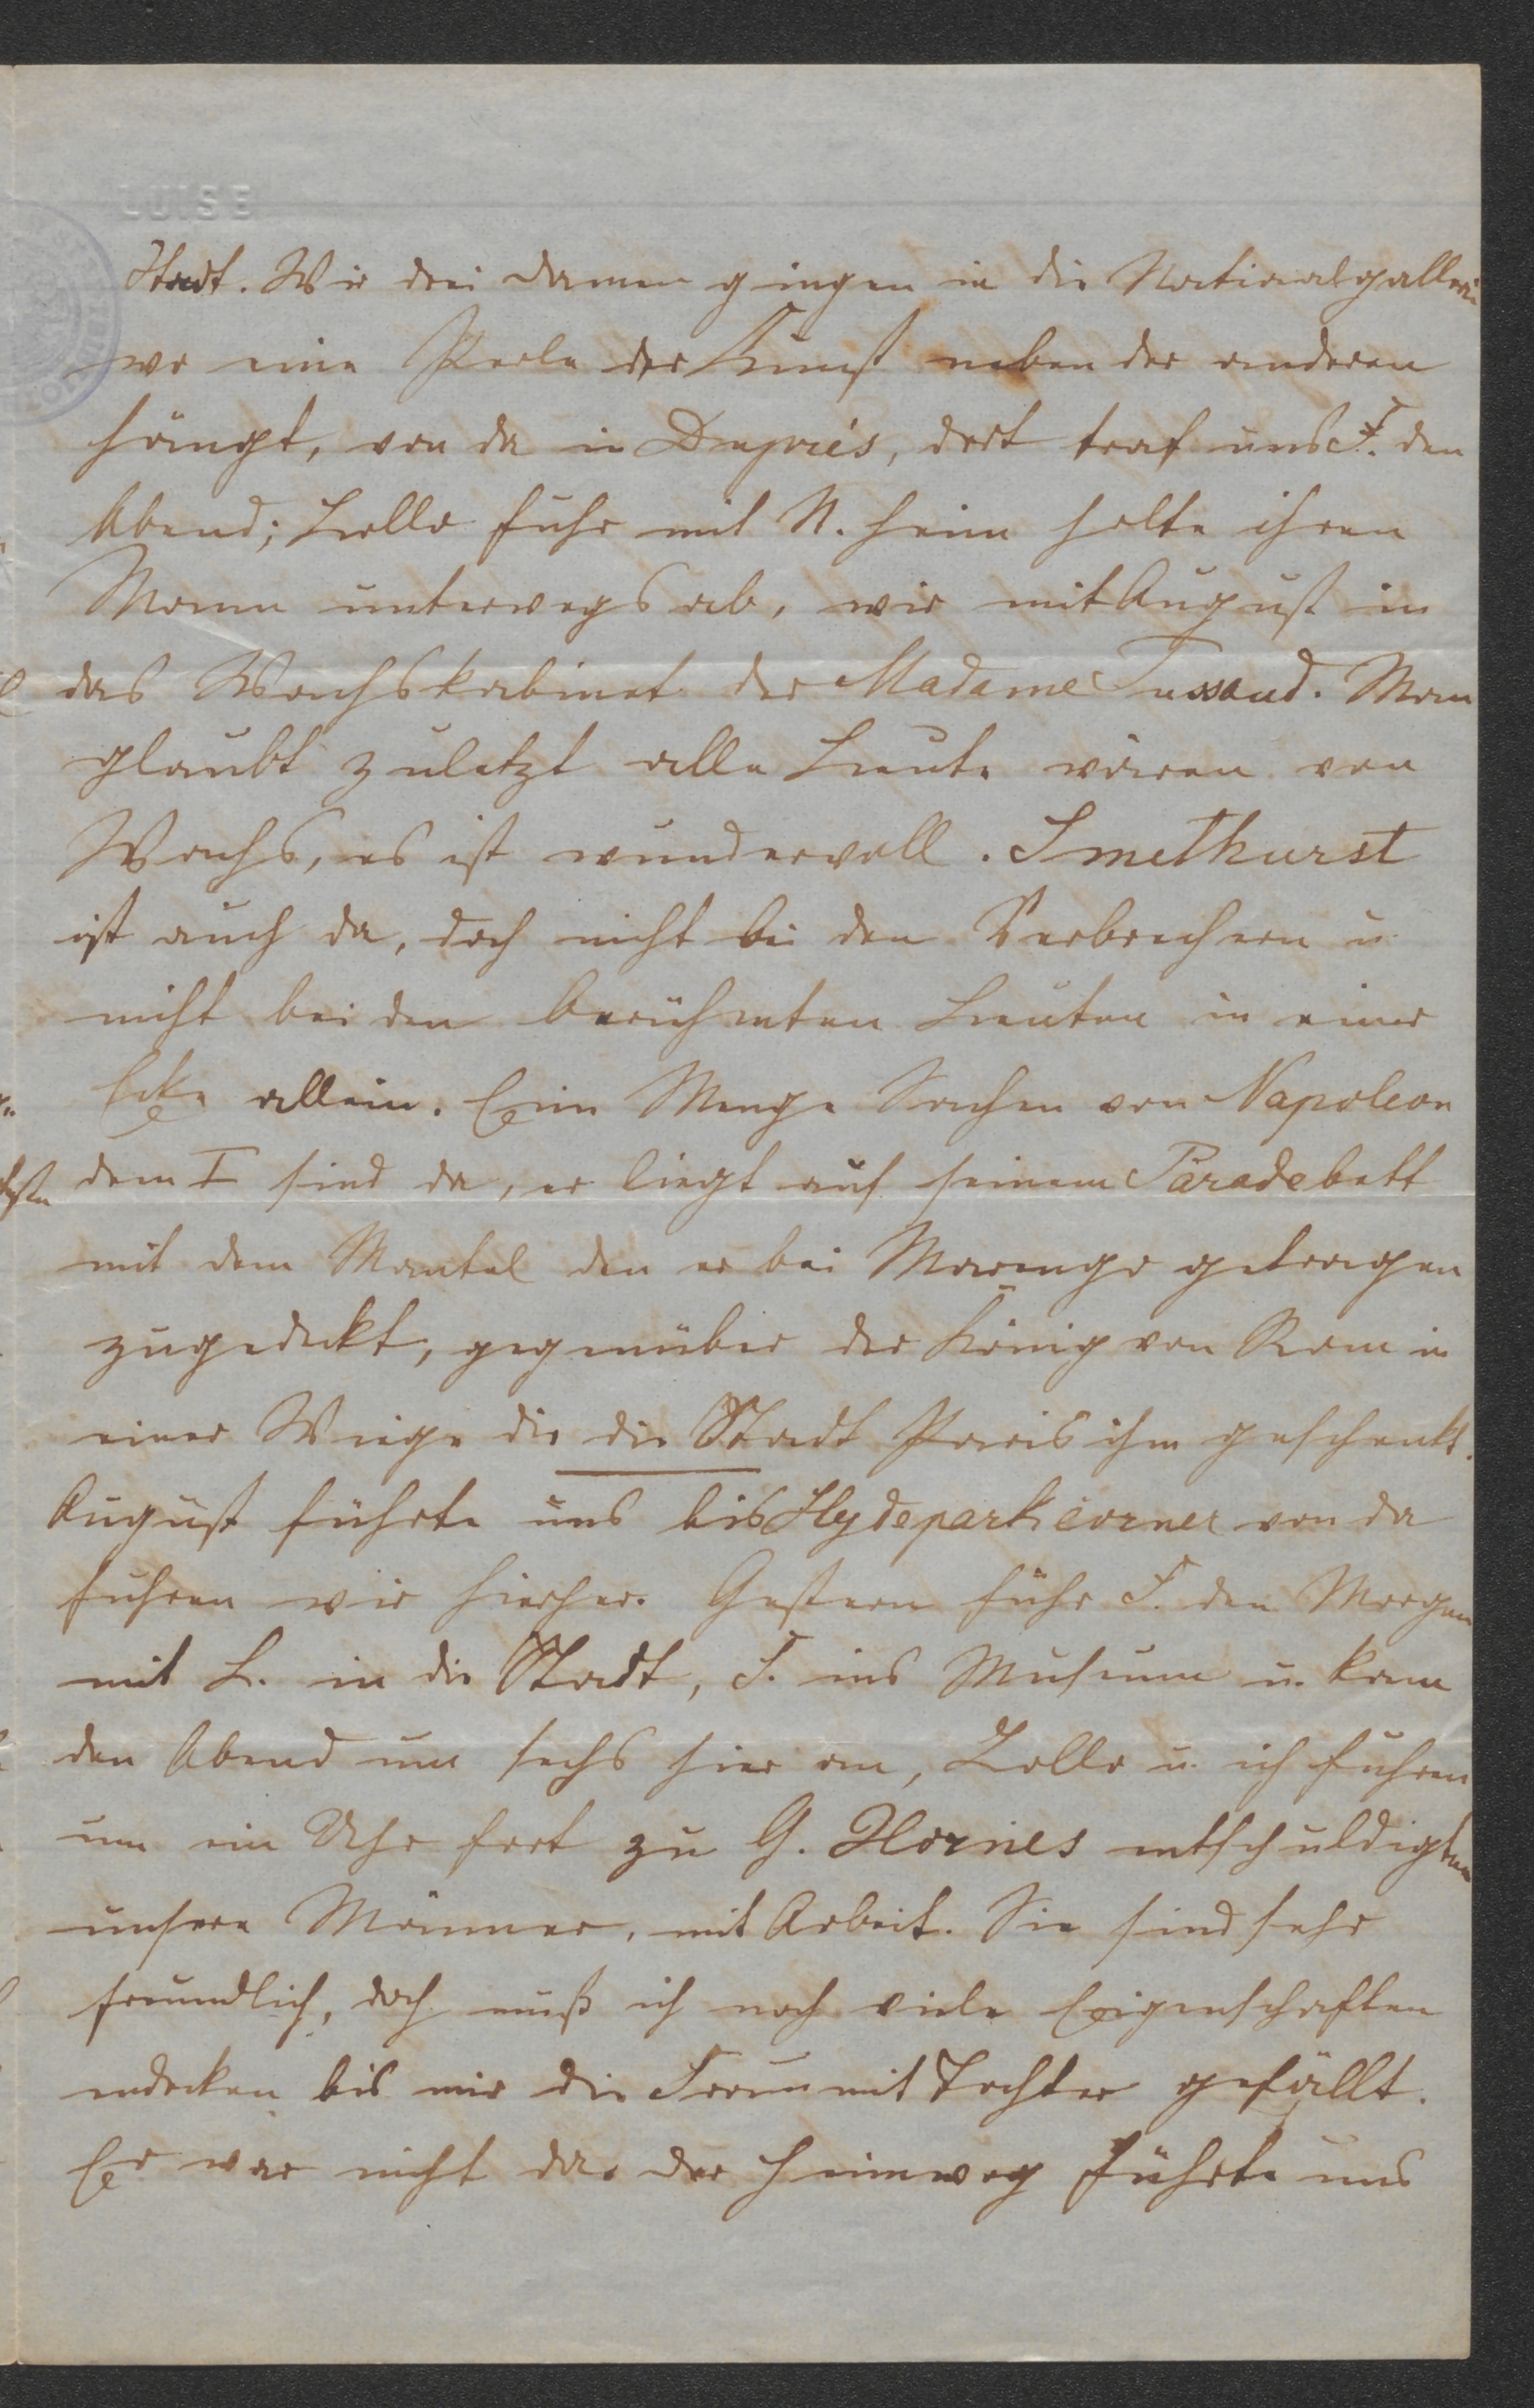 LUISE
Stadt. Wir drei Damen gingen in die Nationalgallerie
wo eine Perle der Kunst neben der anderen
hängt, von da in Duprés, dort traf uns F. den
Abend; Lollo fuhr mit N. heim holte ihren
Mann unterwegs ab, wir mit August in
das Wachskabinet der Madame Tussaud. Man
glaubt zuletzt alle Leute wären von
Wachs, es ist wundervoll. Smethurst
ist auch da, doch nicht bei den Verbrechern u.
nicht bei den berühmten Leuten in einer
Ecke allein. Eine Menge Sachen von Napoleon
dem I sind da, er liegt auf seinem Paradebett
mit dem Mantel den er bei Marengo getragen
zugedeckt, gegenüber der König von Rom in
einer Wiege die die Stadt Paris ihm geschenkt.
August führte uns bis Hydeparkcorner von da
fuhren wir hierher. Gestern fuhr F. den Morgen
mit L. in die Stadt, F. ins Museum u. kam
den Abend um sechs hier an, Lollo u. ich fuhren
um ein Uhr fort zu G. Hornes entschuldigten
unsere Männer, mit Arbeit. Sie sind sehr
freundlich, doch muß ich noch viele Eigenschaften
endecken bis mir die Frau mit Tochter gefällt.
Er war nicht da. der Heimweg führte uns